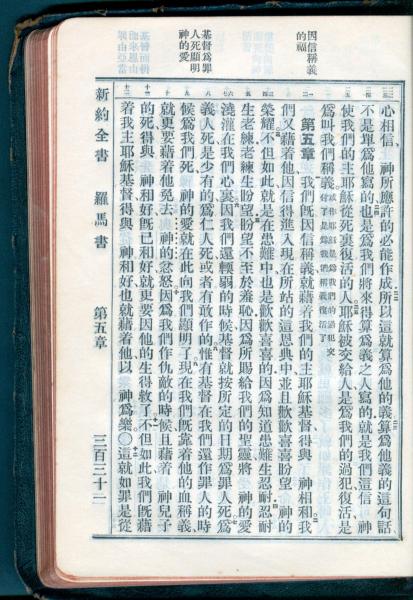 因信稱義
的福
基督爲罪
人死顯明
神的愛
心相信、神所應許的必能作成所以這就算爲他的義算爲他義的這句話、
不是單爲他寫的也是爲我們將來得算爲義之人寫的就是我們這信神
使我們的主耶穌從死裏復活的人耶穌被交給人是爲我們的過犯復活是
爲叫我們稱義
第五章 我們旣因信稱義就藉着我們的主耶穌基督得與神相和我
們又藉着他因信得進入現在所站的這恩典中並且歡歡喜喜盼望神的
榮耀不但如此就是在患難中也是歡歡喜喜的因爲知道患難生忍耐忍耐
生老練老練生盼望盼望不至於羞恥因爲所賜給我們的聖靈將神的愛
澆灌在我們心裏因我們還輭弱的時候基督就按所定的日期爲罪人死爲
義人死是少有的爲仁人死或者有敢作的惟有基督在我們還作罪人的時
候爲我們死神的愛就在此向我們顯明了現在我們旣靠着他的血稱義
就更要藉着他免去神的忿怒因爲我們作仇敵的時候且藉着神兒子
的死得與神和好旣已和好就更要因他的生得救了不但如此我們旣藉
着我主耶穌基督得與神和好也就藉着他以神爲樂〇這就如罪是從
新約全書 羅馬書 第五章 三百三十二